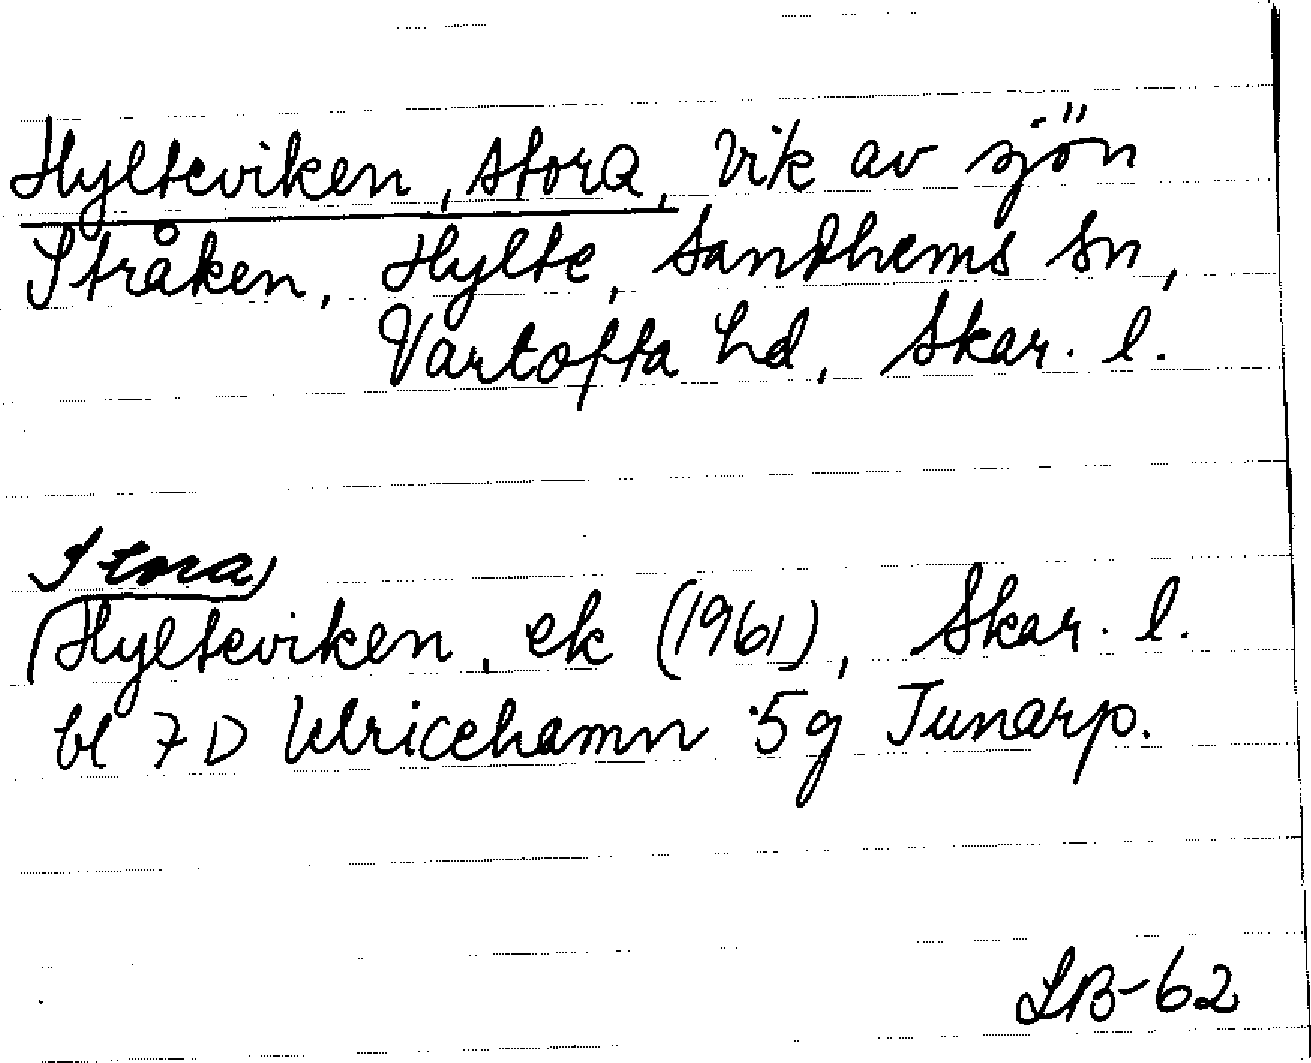 Hylteviken, stora, vik av sjön
Stråken, Hylte, Sandhems sn,
Vartofta hd, Skar. l.
Stora
Hylteviken, ek (1961), Skar. l.
bl 7D Ulricehamn 5g Tunarp.
LB-62